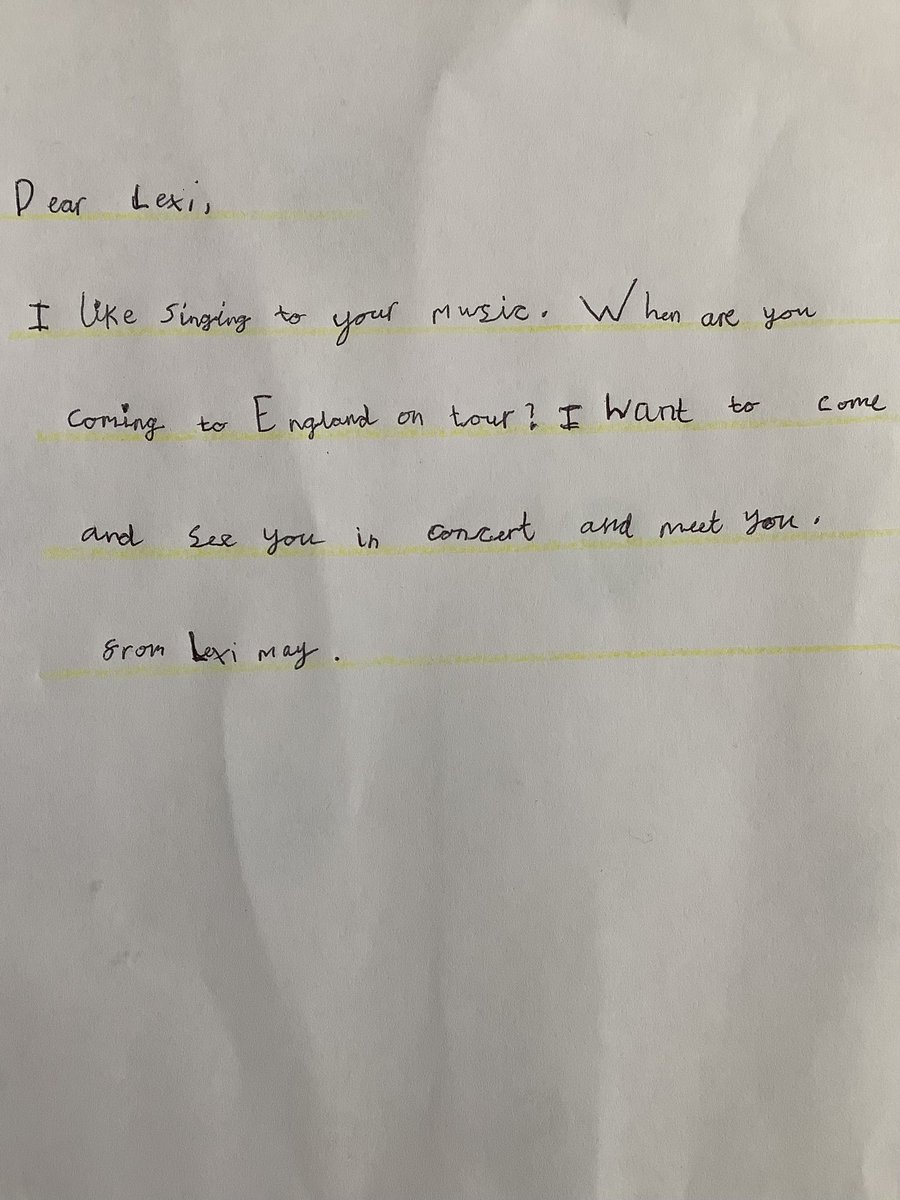 Dear Lexi,
I like singing to your music. When are you
coming to England on tour? I want to come
and see you in concert and meet you.
from Lexi may.